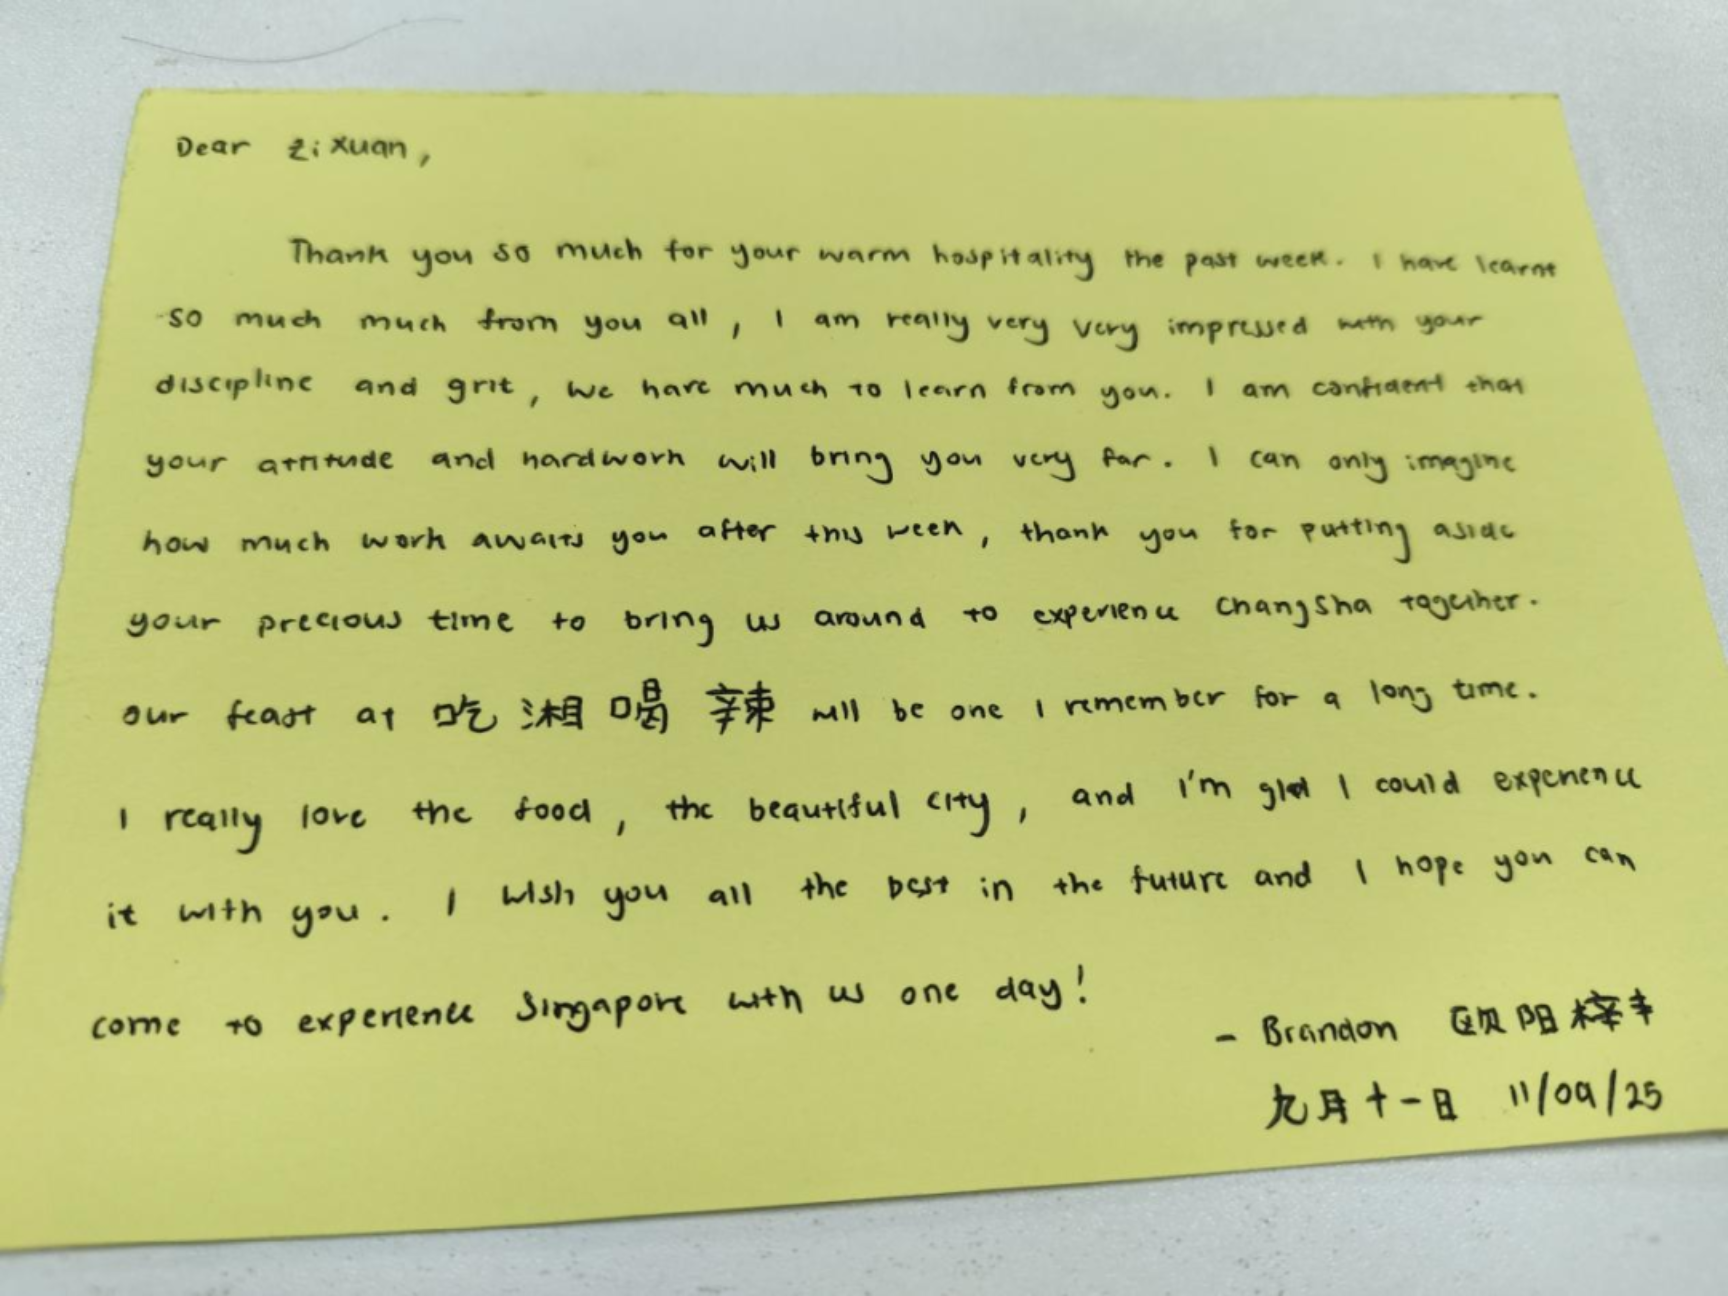 Dear Zi Xuan,
Thank you so much for your warm hospitality the past week. I have learnt
so much much from you all, I am really very very impressed with your
discipline and grit, we have much to learn from you. I am confident that
your attitude and hardwork will bring you very far. I can only imagine
how much work awaits you after this week, thank you for putting aside
your precious time to bring us around to experience Changsha together.
Our feast at 吃湘喝辣 will be one I remember for a long time.
I really love the food, the beautiful city, and I'm glad I could experience
it with you. I wish you all the best in the future and I hope you can
come to experience Singapore with us one day!
- Brandon 欧阳
九月十一日 11/09/25